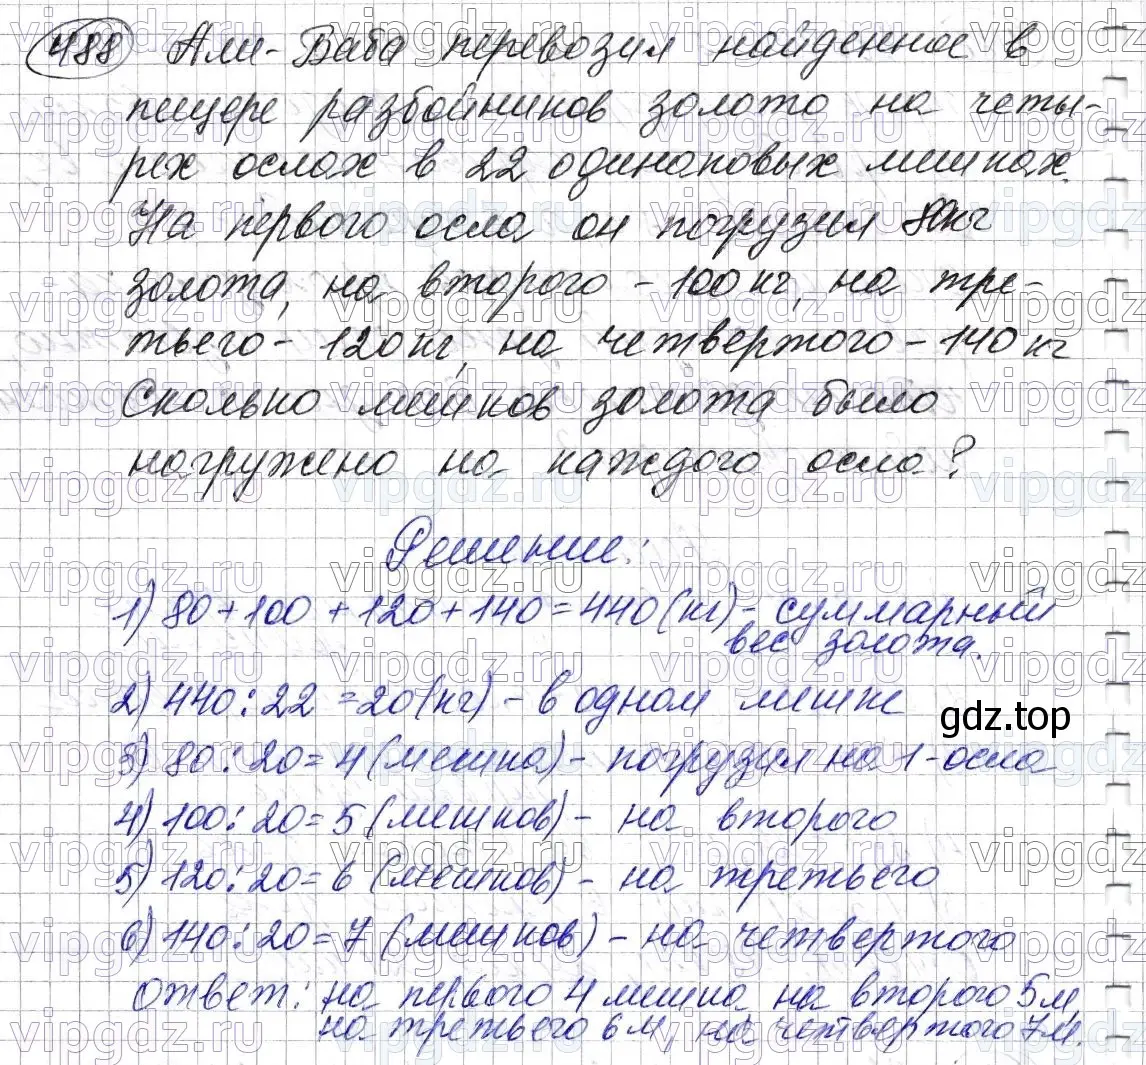 488 Али-Баба перевозил найденное в
пещере разбойников золото на четы-
рех ослах в 22 одинаковых мешках.
На первого осла он погрузил 80кг
золота, на второго - 100кг, на тре-
тьего - 120кг, на четвертого - 140кг
Сколько мешков золота было
нагружено на каждого осла?
Решение:
1) 80+100+120+140=440(кг)- суммарный
вес золота.
2) 440:22=20(кг) - в одном мешке
gdz.top
3) 80:20=4(мешка) - погрузил на 1-осла
4) 100:20=5(мешков) - на второго
5) 120:20=6(мешков) - на третьего
6) 140:20=7(мешков) - на четвертого
Ответ: на первого 4 мешка, на второго 5м,
на третьего 6м, на четвертого 7м.
vipgdz.ru